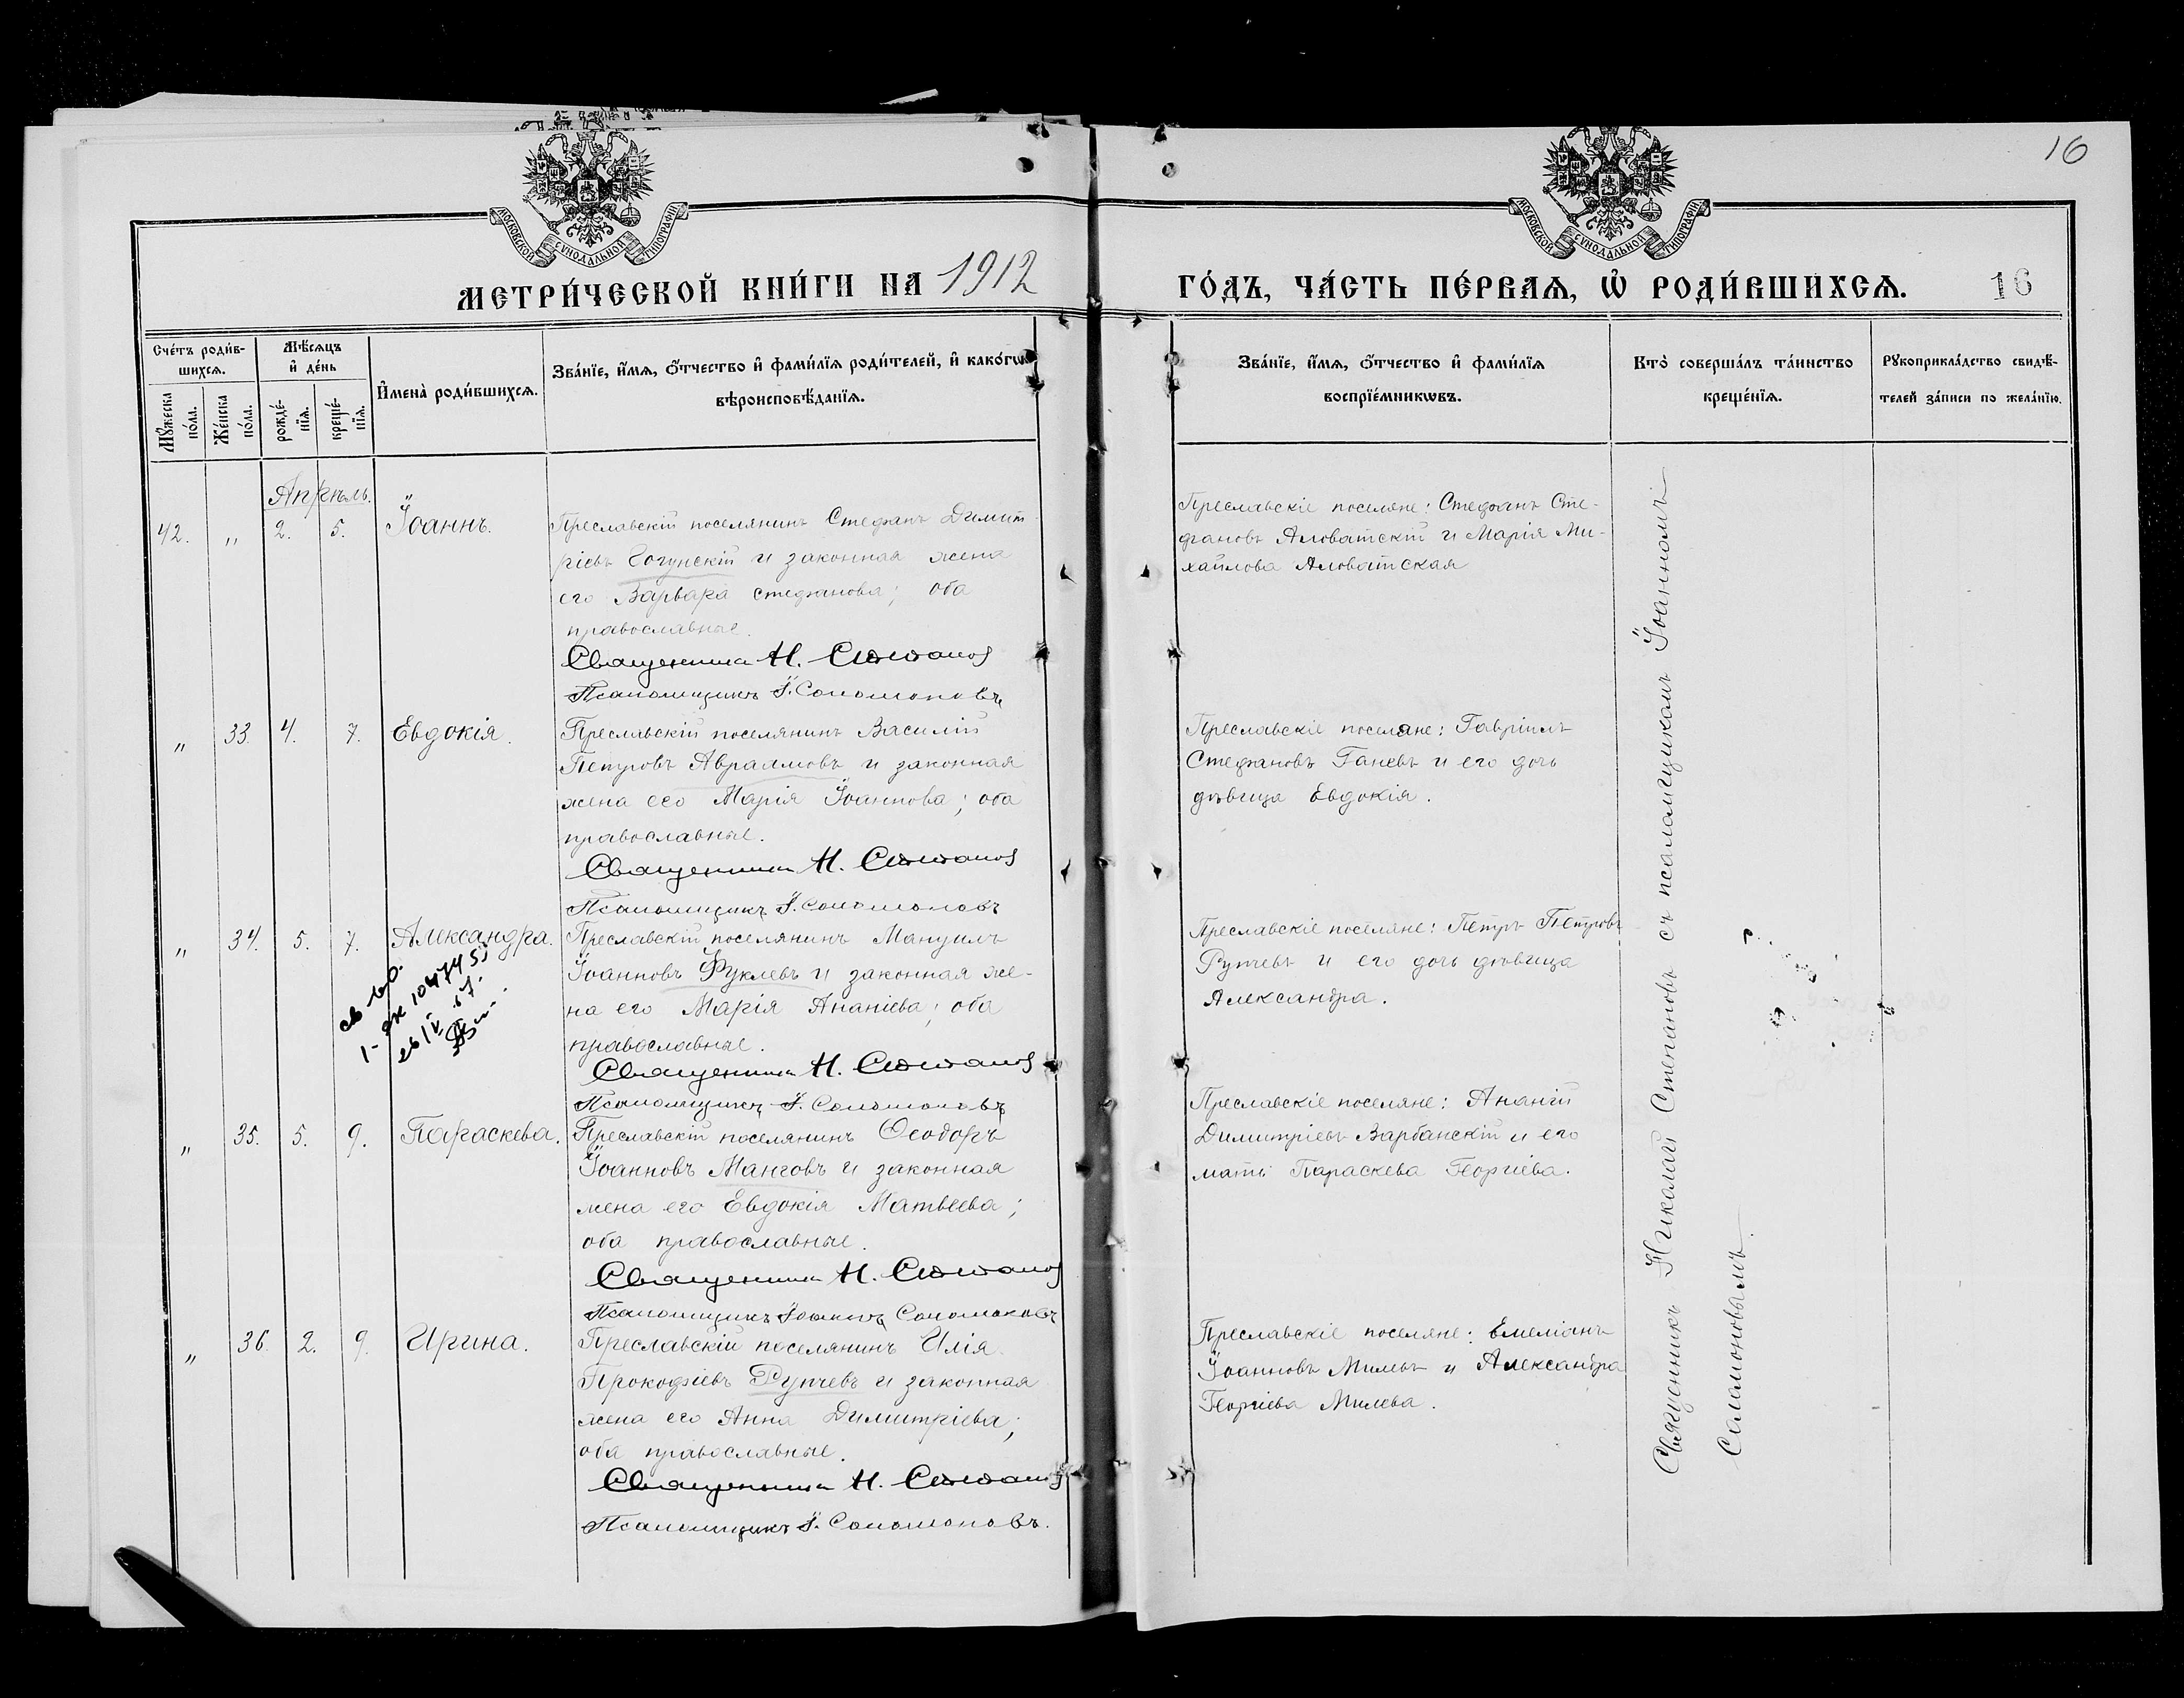 16
МОСКОВСКОЙ СУНОДАЛЬНОЙ ТИПОГРАФІИ
МОСКОВСКОЙ СУНОДАЛЬНОЙ ТИПОГРАФІИ
МЕТРИ́ЧЕСКОЙ КНИ́ГИ НА 1912
ГО́ДЪ, ЧА́СТЬ ПЕ́РВАѦ, Ѡ҆ РОДИ́ВШИХСѦ.
16
Сче́тъ роди́в-
шихсѧ.
Мꙋ́жеска по́ла.
Же́нска по́ла.
Мѣ́сѧцъ
и҆ де́нь
рожде́-
нїѧ.
креще́-
нїѧ.
И҆мена̀ роди́вшихсѧ.
Зва́нїе, и҆́мѧ, ѻ҆́тчество и҆ фами́лїѧ роди́телей, и҆ како́гѡ
вѣроисповѣ́данїѧ.
Зва́нїе, и҆́мѧ, ѻ҆́тчество и҆ фами́лїѧ
воспрїе́мникѡвъ.
Кто̀ соверша́лъ та́инство
креще́нїѧ.
Рꙋкоприкла́дство свидѣ́-
телей за́писи по жела́нїю.
Апрѣль.
42. „ 2. 5. Іоаннъ.
Преславскій поселянинъ Стефанъ Димит-
ріевъ Гогунскій и законная жена
его Варвара Стефанова; оба
православные.
Священникъ Н. Степановъ
Псаломщикъ І. Соломоновъ
Преславскіе поселяне: Стефанъ Сте-
фановъ Аловатскій и Марія Ми-
хайлова Аловатская
„ 33. 4. 7. Евдокія.
Преславскій поселянинъ Василій
Петровъ Авраамовъ и законная
жена его Марія Іоаннова; оба
православные.
Священникъ Н. Степановъ
Псаломщикъ І. Соломоновъ
Преславскіе поселяне: Гавріилъ
Стефановъ Ганевъ и его дочь
дѣвица Евдокія.
„ 34. 5. 7. Александра.
Преславскій поселянинъ Мануилъ
Іоанновъ Фуклевъ и законная же-
на его Марія Ананіева; оба
православные.
Священникъ Н. Степановъ
Псаломщикъ І. Соломоновъ
Преславскіе поселяне: Петръ Петровъ
Рупчевъ и его дочь дѣвица
Александра.
св-во.
„ 35. 5. 9. Параскева.
Преславскій поселянинъ Ѳеодоръ
Іоанновъ Манговъ и законная
жена его Евдокія Матвѣева;
оба православные.
Священникъ Н. Степановъ
Псаломщикъ Іоаннъ Соломоновъ
Преславскіе поселяне: Ананій
Димитріевъ Варбанскій и его
мать Параскева Георгіева.
„ 36. 2. 9. Ирина.
Преславскій поселянинъ Илія
Прокофіевъ Рупчевъ и законная
жена его Анна Димитріева;
оба православные.
Священникъ Н. Степановъ
Псаломщикъ І. Соломоновъ.
Преславскіе поселяне: Емеліанъ
Іоанновъ Милевъ и Александра
Георгіева Милева.
Священникъ Николай Степановъ съ псаломщикомъ Іоанномъ
Соломоновымъ.